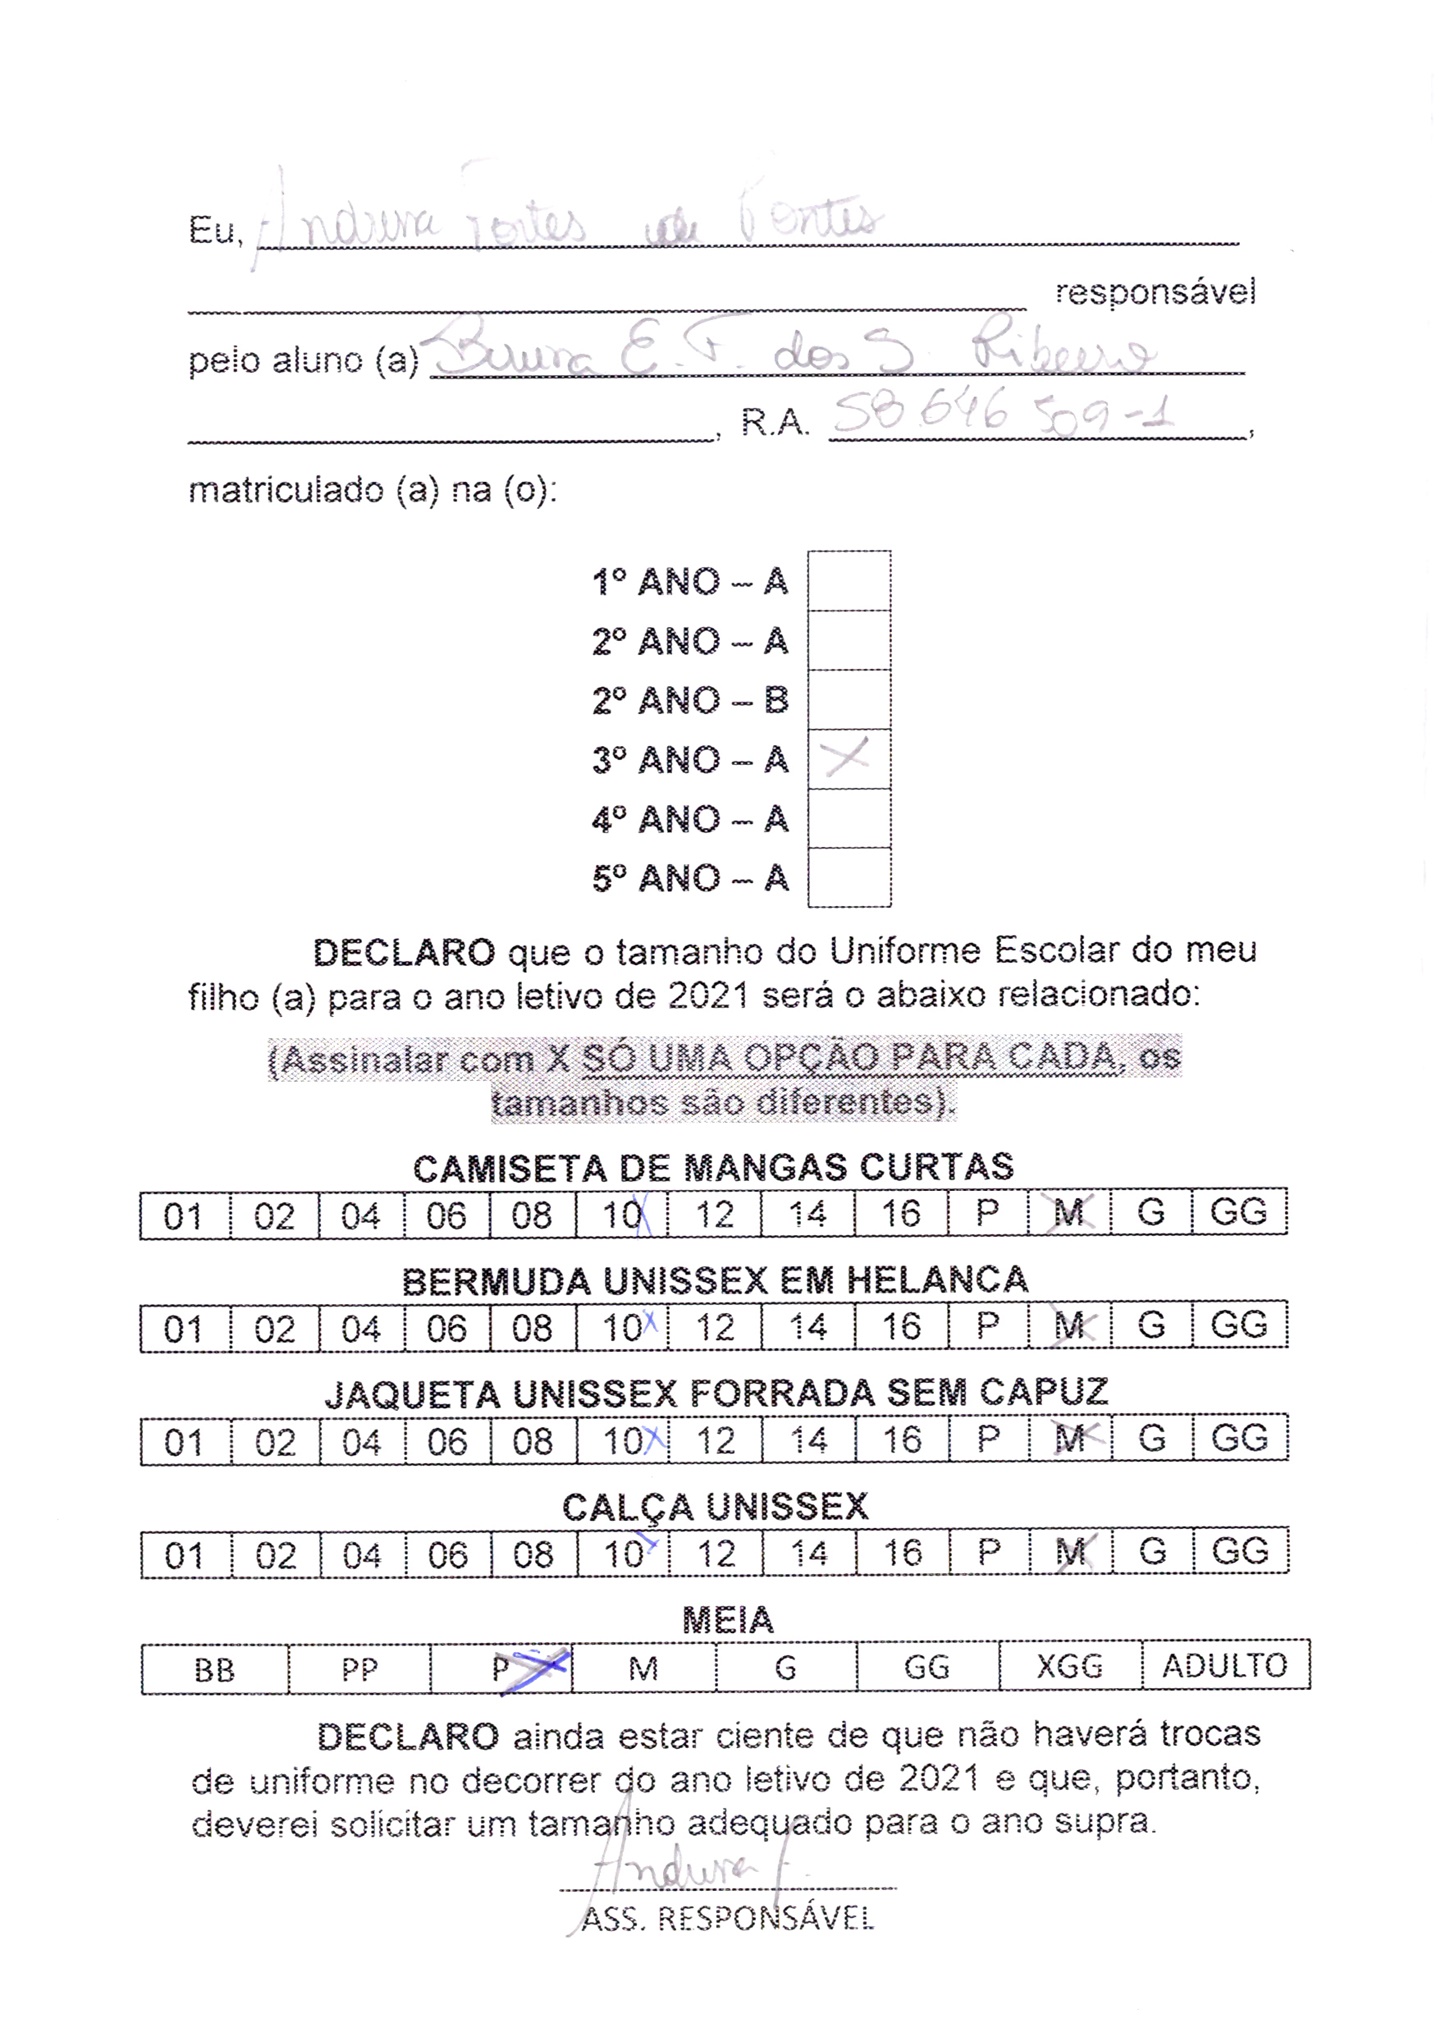 Eu, Andreia Fortes de Pontes
responsável
pelo aluno (a) Bruna E. F. dos S. Ribeiro
, R.A. 58.646 509-1,
matriculado (a) na (o):
1º ANO – A
2º ANO – A
2º ANO – B
3º ANO – A X
4º ANO – A
5º ANO – A
DECLARO que o tamanho do Uniforme Escolar do meu
filho (a) para o ano letivo de 2021 será o abaixo relacionado:
(Assinalar com X SÓ UMA OPÇÃO PARA CADA, os
tamanhos são diferentes).
CAMISETA DE MANGAS CURTAS
01 02 04 06 08 10 X 12 14 16 P M X G GG
BERMUDA UNISSEX EM HELANCA
01 02 04 06 08 10 X 12 14 16 P M X G GG
JAQUETA UNISSEX FORRADA SEM CAPUZ
01 02 04 06 08 10 X 12 14 16 P M X G GG
CALÇA UNISSEX
01 02 04 06 08 10 X 12 14 16 P M X G GG
MEIA
BB PP P X M G GG XGG ADULTO
DECLARO ainda estar ciente de que não haverá trocas
de uniforme no decorrer do ano letivo de 2021 e que, portanto,
deverei solicitar um tamanho adequado para o ano supra.
Andreia F.
ASS. RESPONSÁVEL